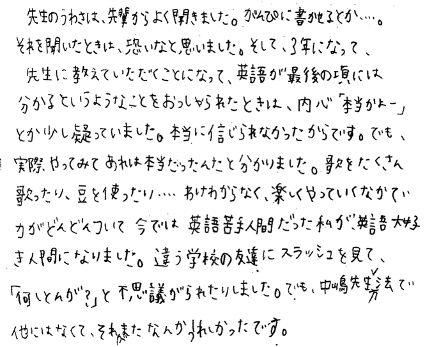 先生のうわさは、先輩からよく聞きました。がんぴに書かせるとか….。
それを聞いたときは、恐いなと思いました。そして、3年になって、
先生に教えていただくことになって、英語が最後の頃には
分かるというようなことをおっしゃられたときは、内心「本当かよー」
とか少し疑っていました。本当に信じられなかったからです。でも、
実際やってみてあれは本当だったんだと分かりました。歌をたくさん
歌ったり、豆を使ったり….. わけわからなく、楽しくやっていくなかで
力がどんどんついて 今では 英語苦手人間だった私が、英語大好
き人間になりました。違う学校の友達にスラッシュを見て、
「何しとんが?」と不思議がられたりしました。でも、中嶋先生方法で
他にはなくて、それまたなんかうれしかったです。